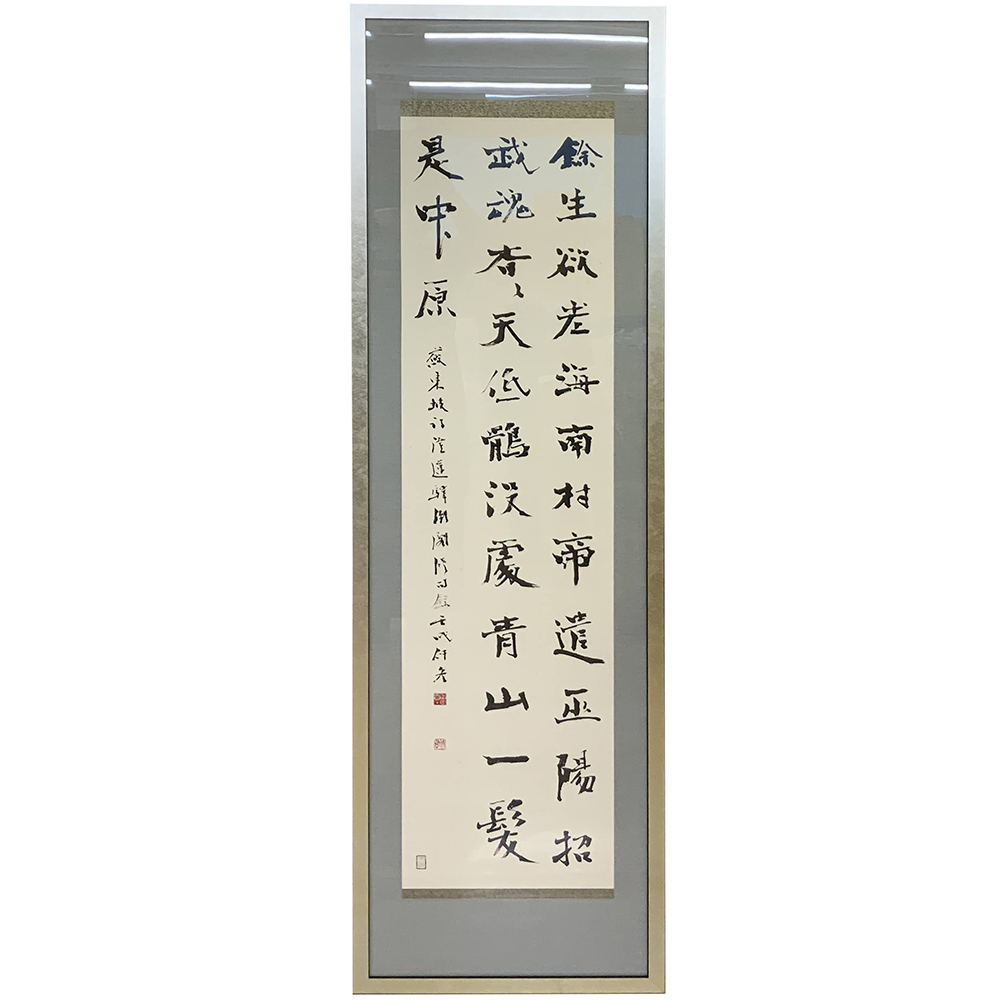 餘生欲老海南村帝遣巫陽招
我魂杳〻天低鶻沒處青山一髮
是中原
蘇東坡詩澄邁驛潮閣